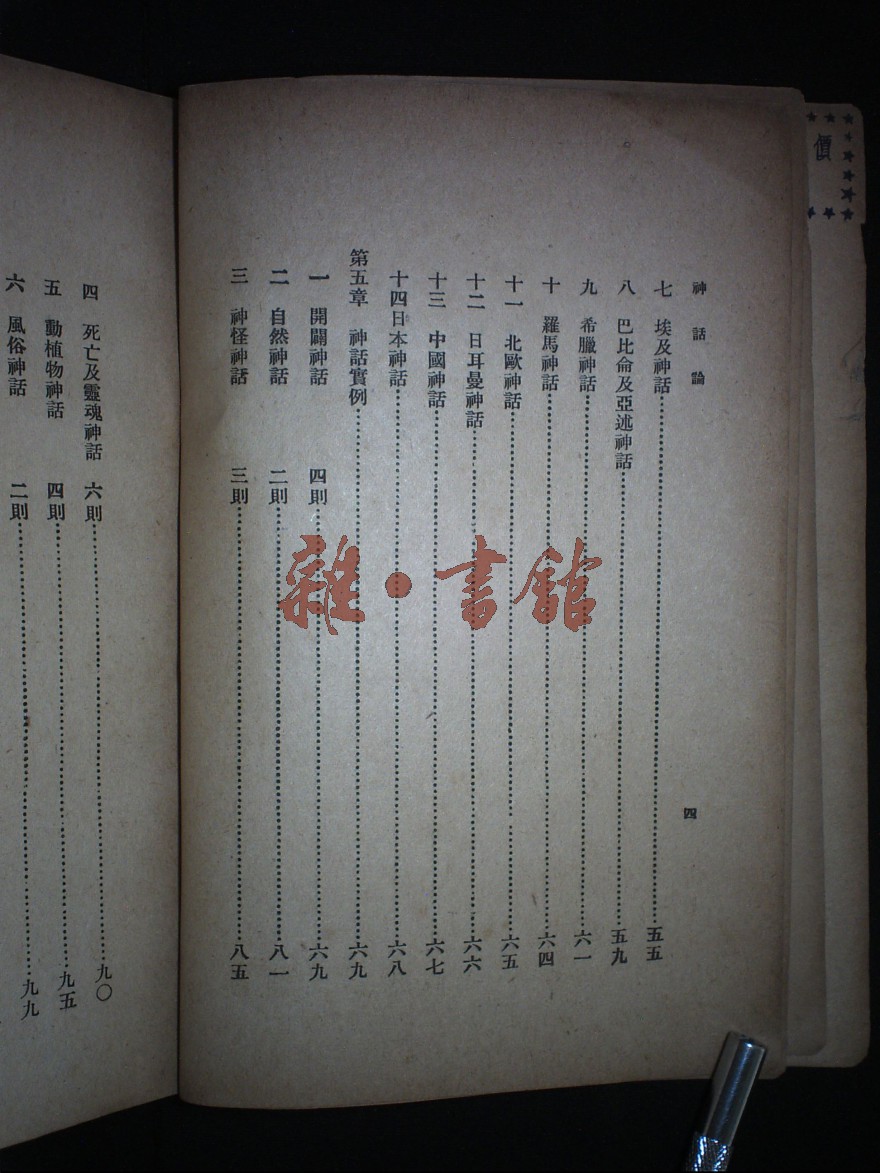 價
神話論
四
七　埃及神話……五五
八　巴比侖及亞述神話……五九
九　希臘神話……六一
十　羅馬神話……六四
十一　北歐神話……六五
十二　日耳曼神話……六六
十三　中國神話……六七
十四日本神話……六八
第五章　神話實例……六九
一　開闢神話　四則……六九
二　自然神話　二則……八一
三　神怪神話　三則……八五
四　死亡及靈魂神話　六則……九〇
五　動植物神話　四則……九五
六　風俗神話　二則……九九
雜·書館